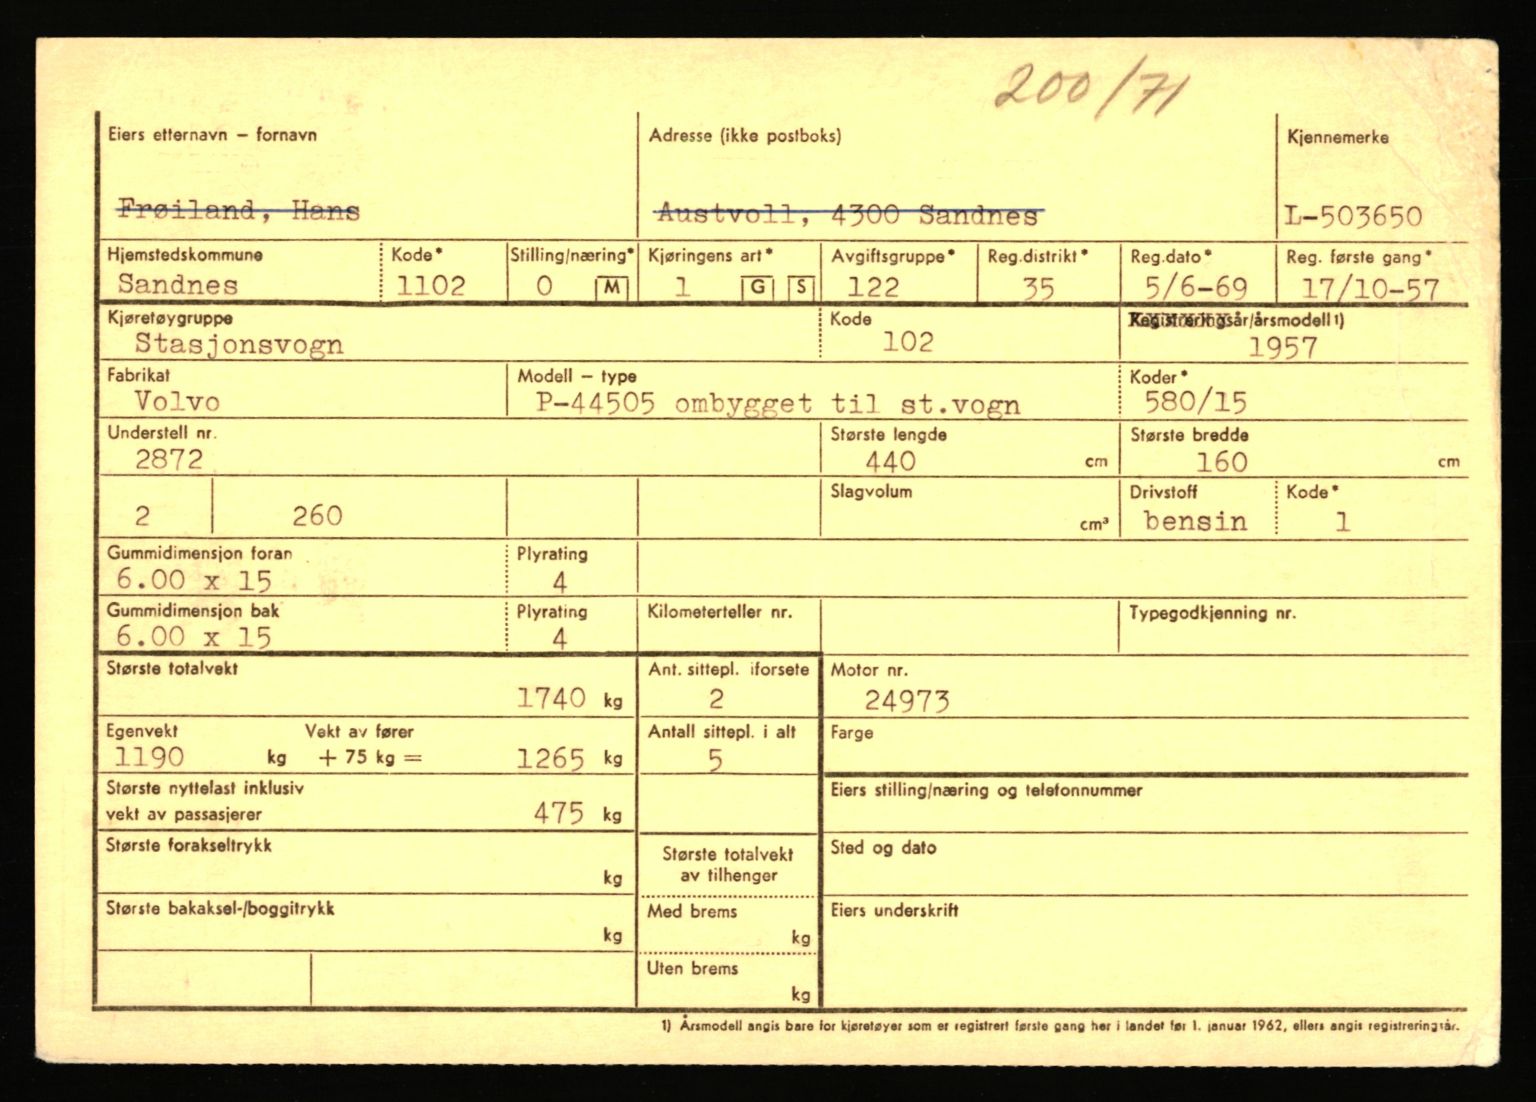 200/71
Eiers etternavn – fornavn Adresse (ikke postboks) Kjennemerke
Frøiland, Hans Austvoll, 4300 Sandnes L-503650
Hjemstedskommune Kode* Stilling/næring* Kjøringens art* Avgiftsgruppe* Reg.distrikt* Reg.dato* Reg. første gang*
Sandnes 1102 0 M 1 G S 122 35 5/6-69 17/10-57
Kjøretøygruppe Kode Registreringsår/årsmodell 1)
Stasjonsvogn 102 1957
Fabrikat Modell – type Koder*
Volvo P-44505 ombygget til st.vogn 580/15
Understell nr. Største lengde Største bredde
2872 440 cm 160 cm
Slagvolum Drivstoff Kode*
2 260 cm³ bensin 1
Gummidimensjon foran Plyrating
6.00 x 15 4
Gummidimensjon bak Plyrating Kilometerteller nr. Typegodkjenning nr.
6.00 x 15 4
Største totalvekt Ant. sittepl. iforsete Motor nr.
1740 kg 2 24973
Egenvekt Vekt av fører Antall sittepl. i alt Farge
1190 kg + 75 kg = 1265 kg 5
Største nyttelast inklusiv Eiers stilling/næring og telefonnummer
vekt av passasjerer 475 kg
Største forakseltrykk Største totalvekt Sted og dato
kg av tilhenger
Største bakaksel-/boggitrykk Med brems Eiers underskrift
kg kg
Uten brems
kg
1) Årsmodell angis bare for kjøretøyer som er registrert første gang her i landet før 1. januar 1962, ellers angis registreringsår.